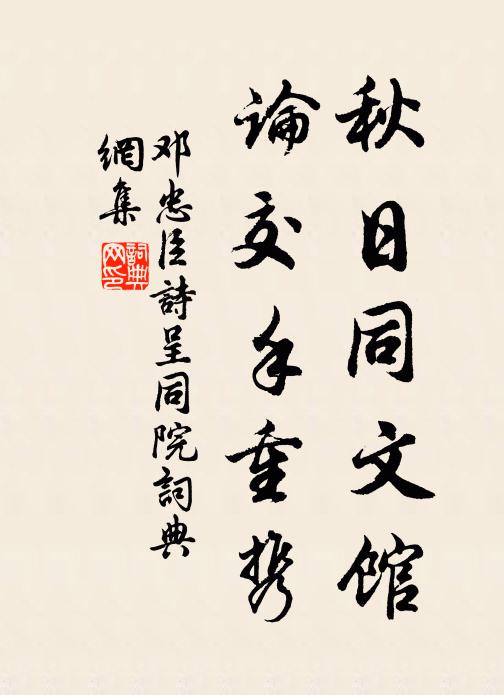 秋日同文館
論交手重携
邓忠臣詩呈同院詞典
網集
詞典
网印